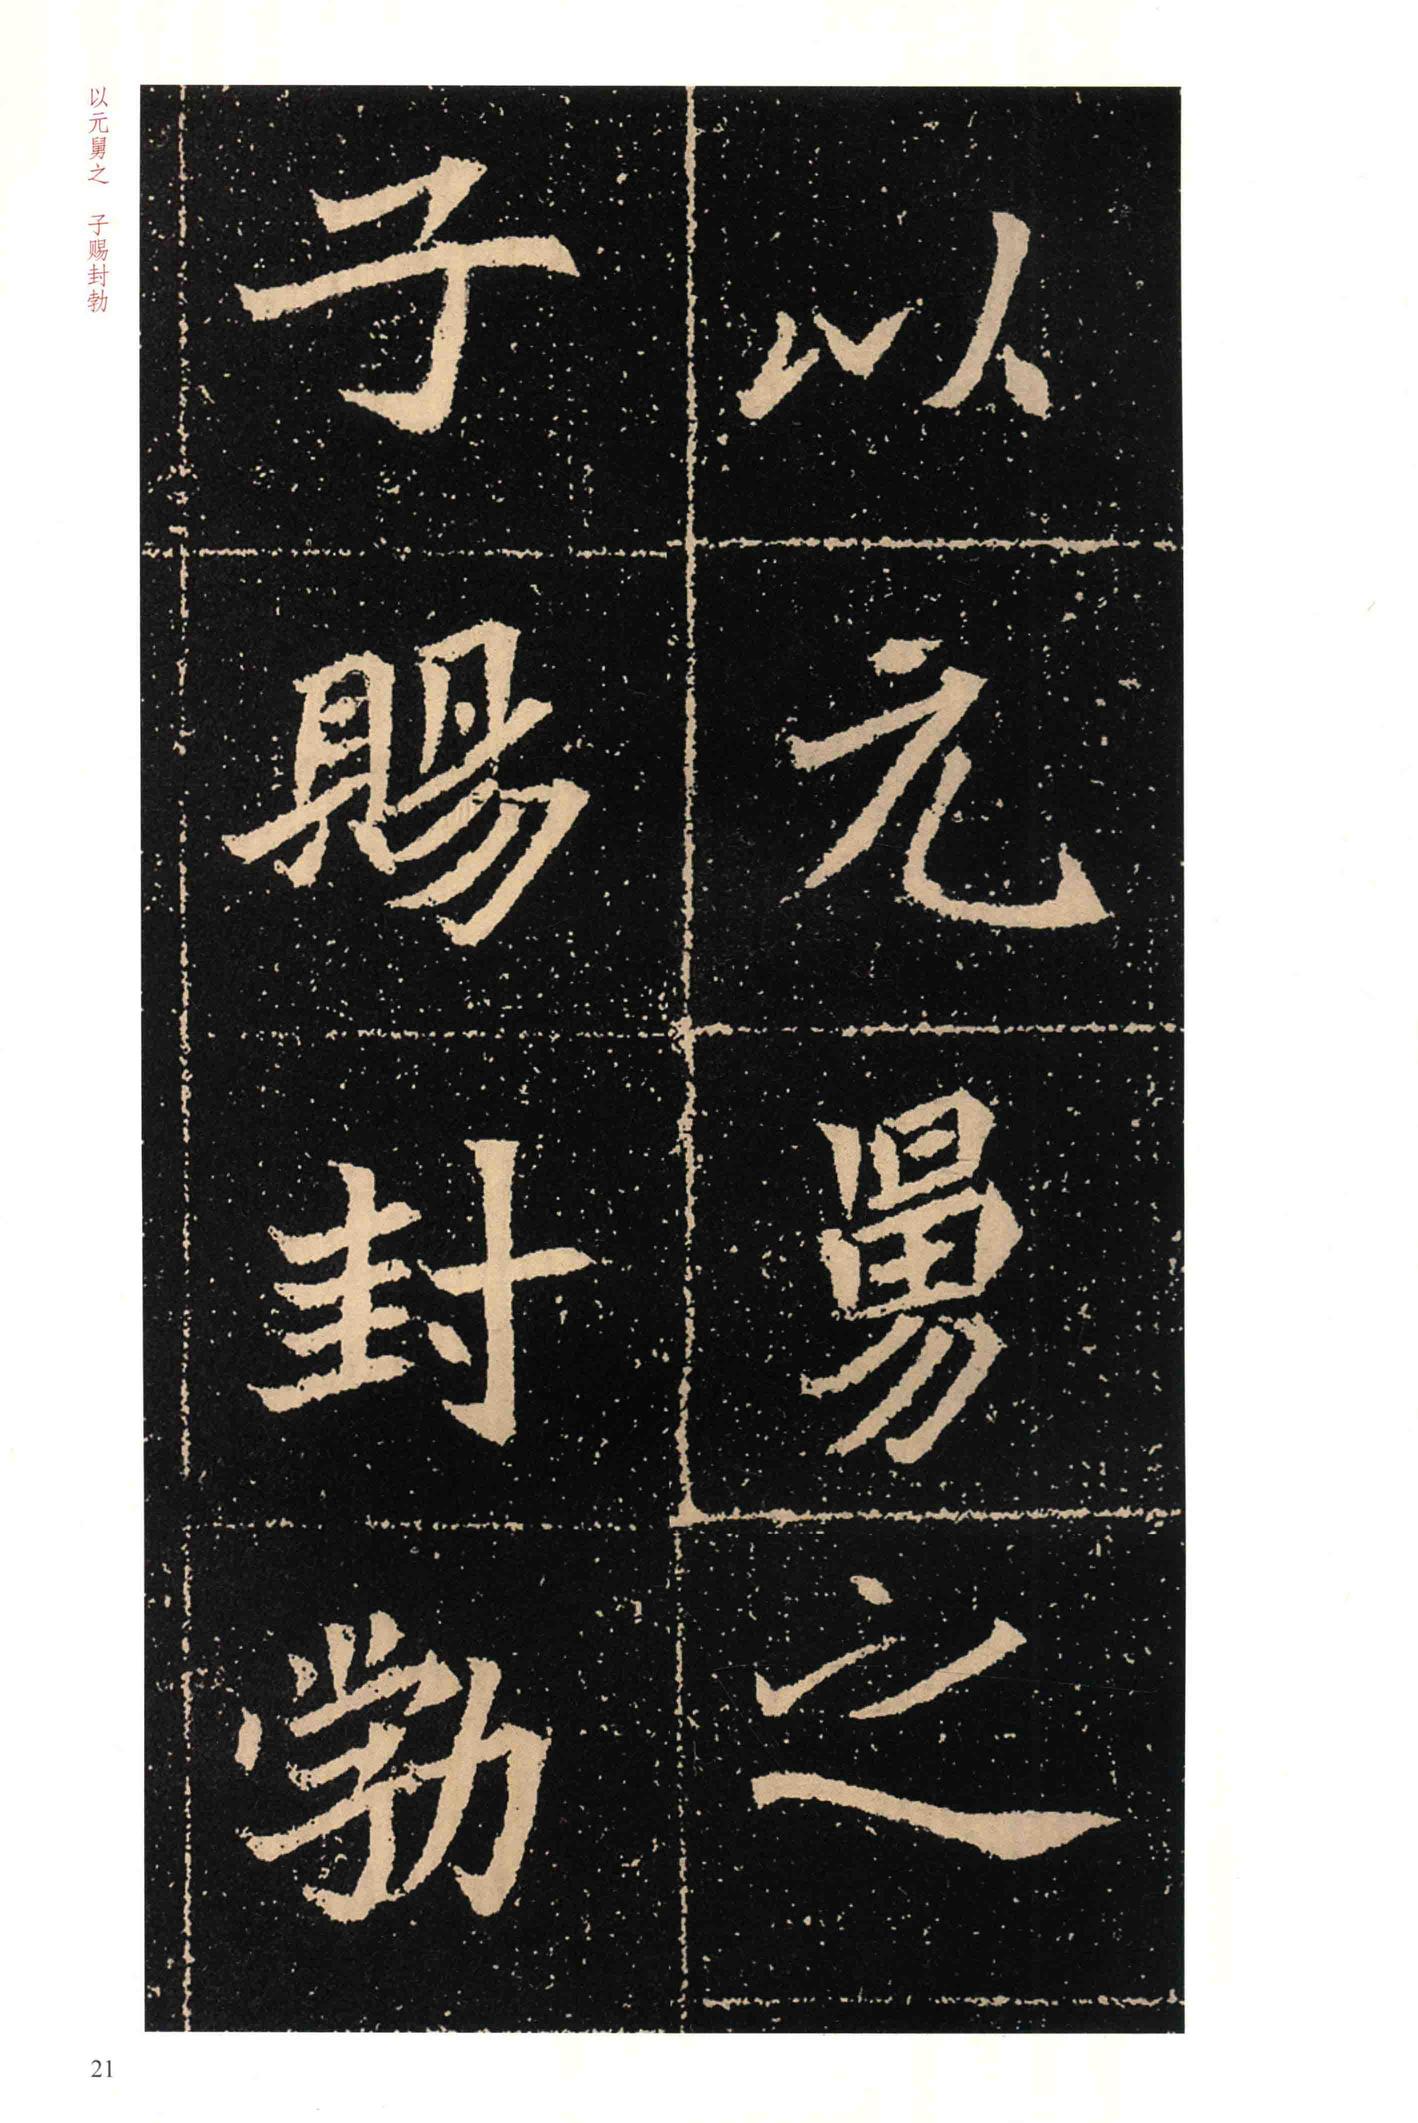 以元舅之
子賜封勃
以元舅之 子赐封勃
21